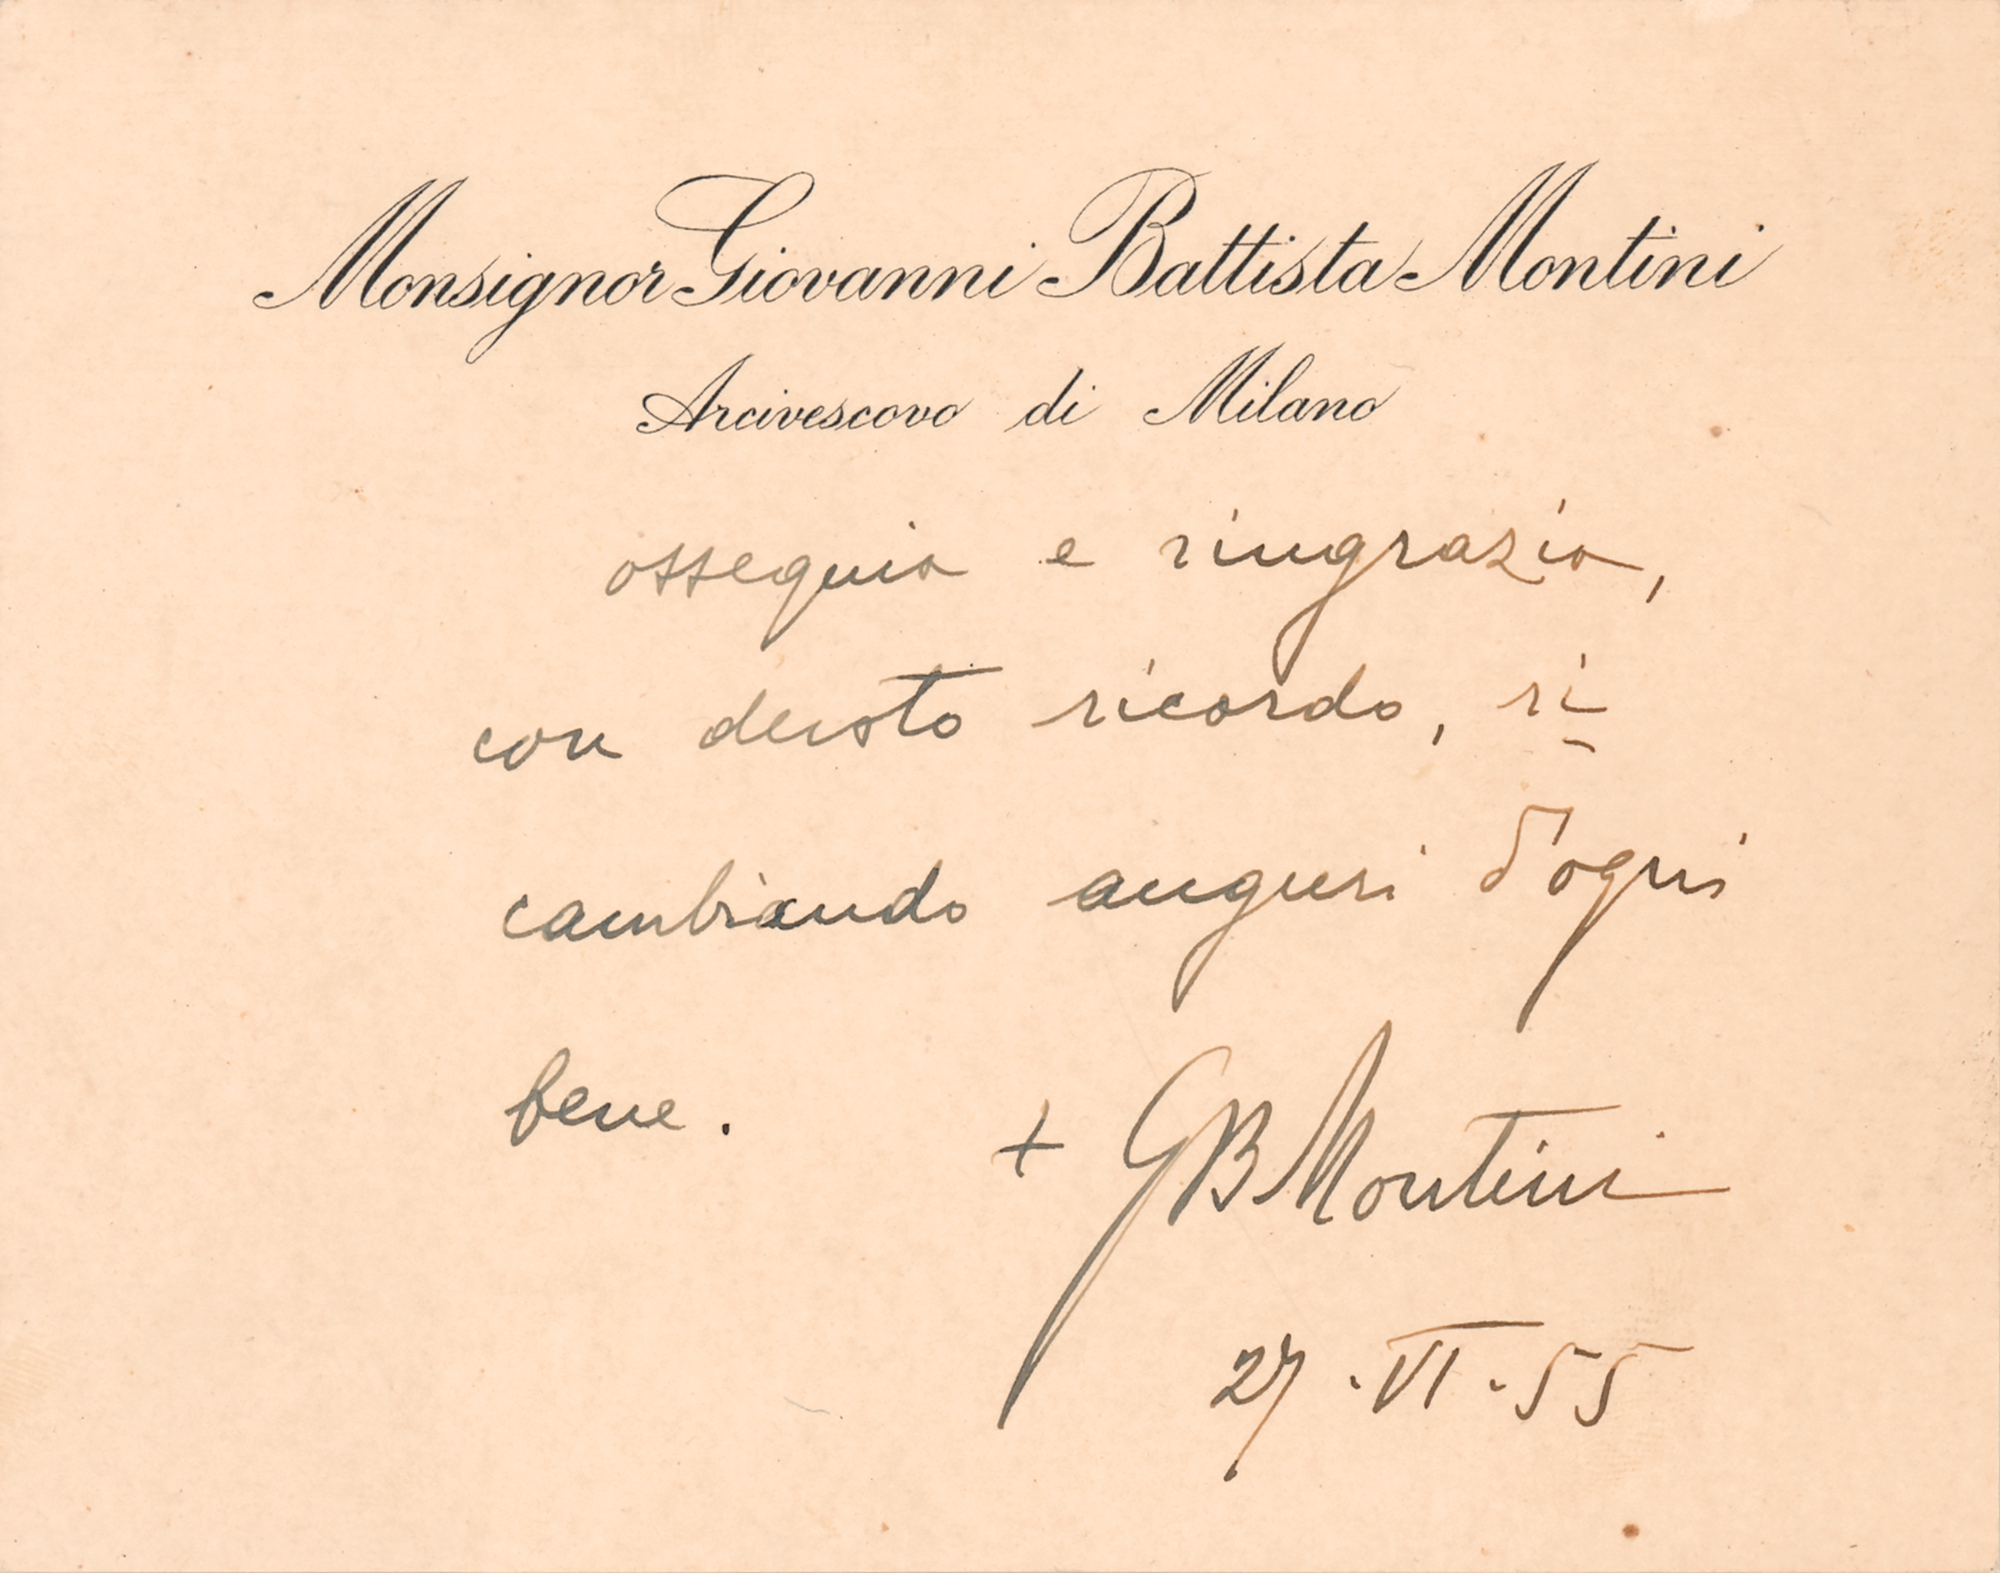 Monsignor Giovanni Battista Montini
Arcivescovo di Milano
ossequia e ringrazia,
con devoto ricordo, ri=
cambiando auguri d'ogni
bene.
+ GBMontini
27.VI.55